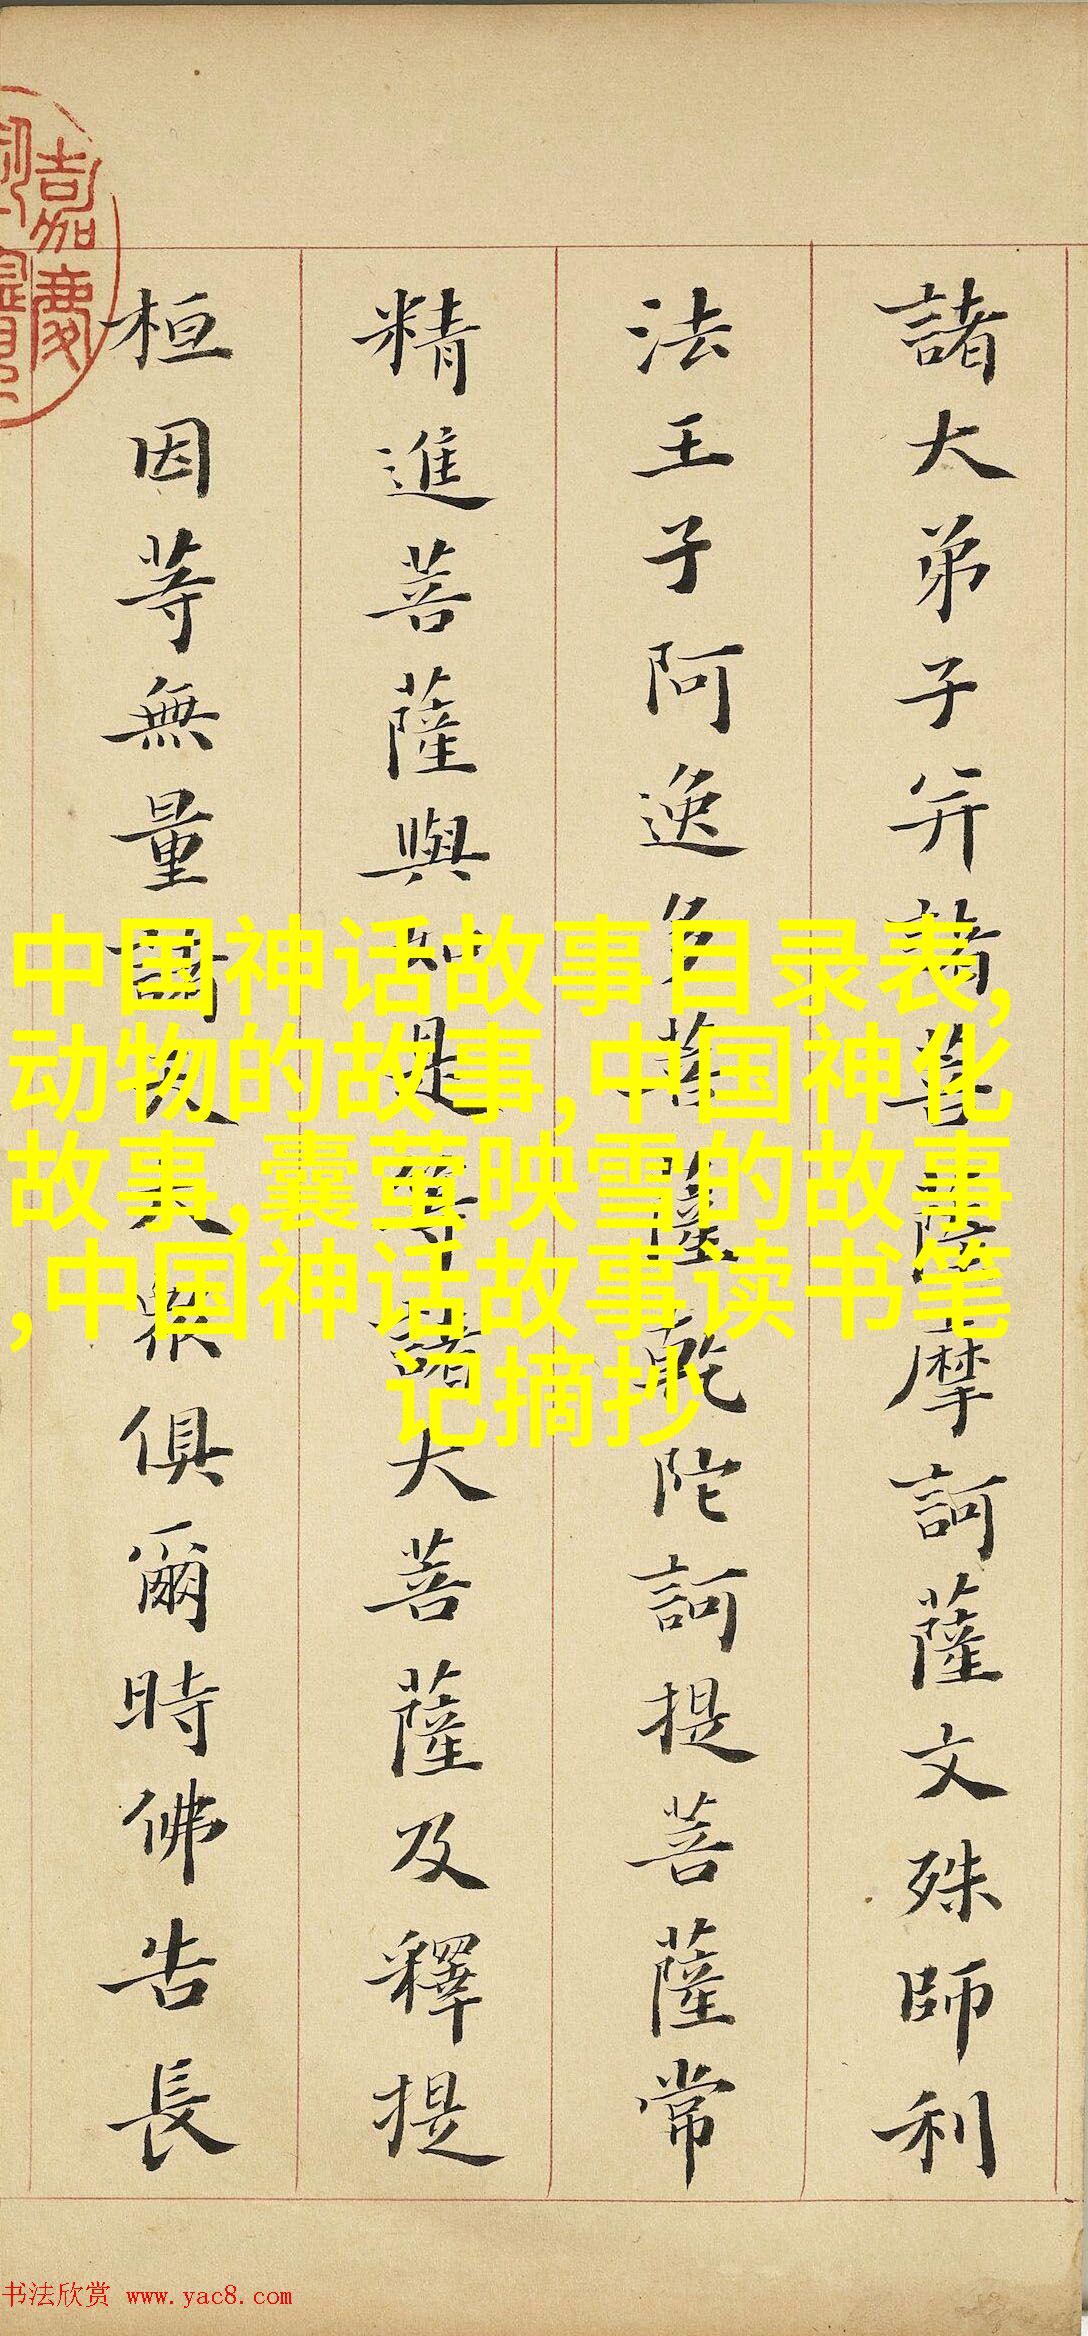 諸大弟子并諸菩薩摩訶薩文殊師利
法王子阿逸多菩薩乾陀訶提菩薩常
精進菩薩與如是等諸大菩薩及釋提
桓因等無量諸天大衆俱爾時佛告長
嘉慶
中国神话故事目录表,
动物的故事,中国神化
故事,囊萤映雪的故事
,中国神话故事读书笔
记摘抄
书法欣赏 www.yac8.com